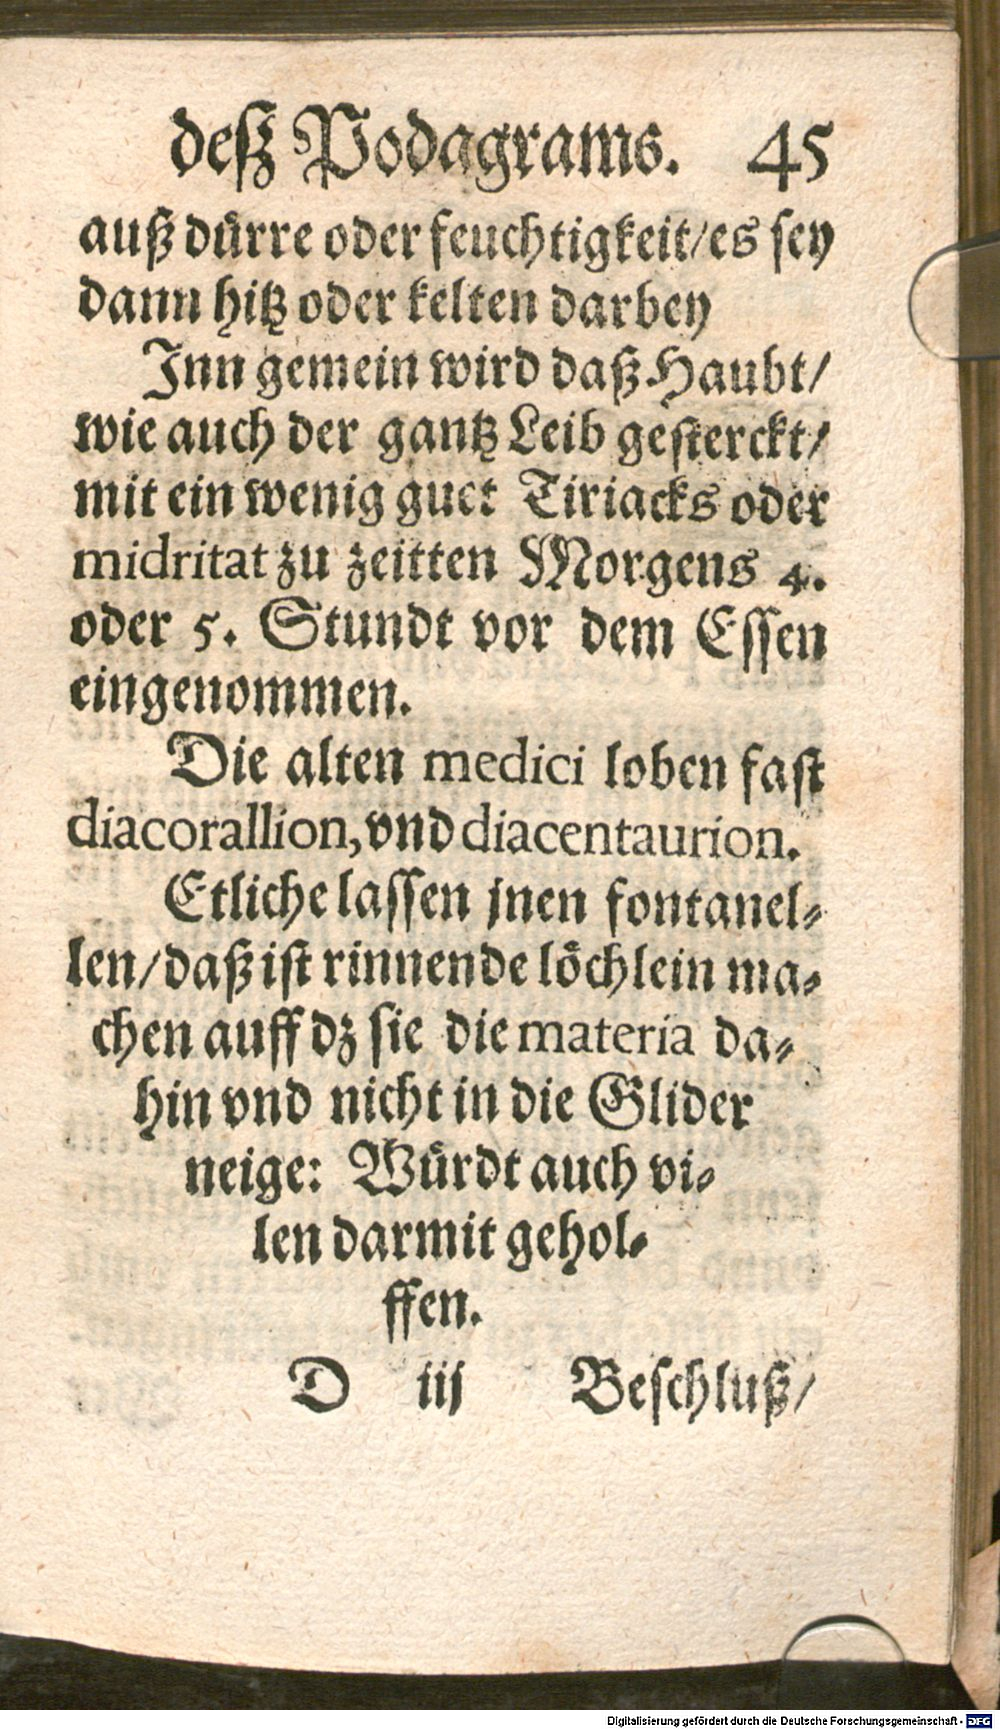 deß Podagrams. 45
auß dürre oder feuchtigkeit/es sey
dann hitz oder kelten darbey
Inn gemein wird daß Haubt/
wie auch der gantz Leib gesterckt/
mit ein wenig guet Tiriacks oder
midritat zu zeitten Morgens 4.
oder 5. Stundt vor dem Essen
eingenommen.
Die alten medici loben fast
diacorallion, vnd diacentaurion.
Etliche lassen jnen fontanel-
len/daß ist rinnende löchlein ma-
chen auff dz sie die materia da-
hin vnd nicht in die Glider
neige: Würdt auch vi-
len darmit gehol-
ffen.
D iij Beschluß/
Digitalisierung gefördert durch die Deutsche Forschungsgemeinschaft - DFG